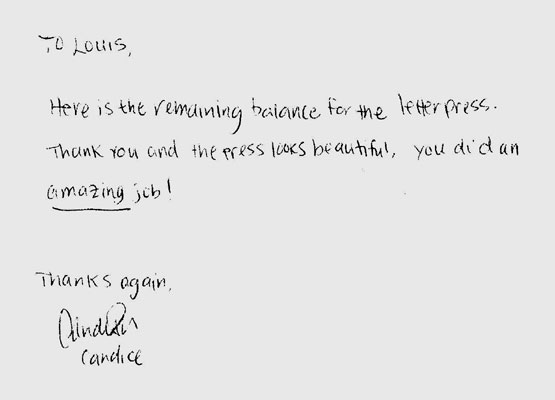 To Louis,
Here is the remaining balance for the letterpress.
Thank you and the press looks beautiful, you did an
amazing job!
Thanks again,
Candice